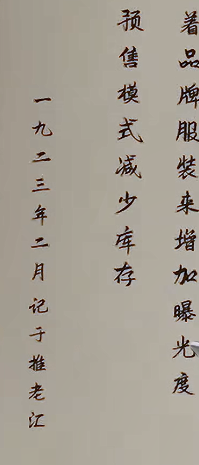 着品牌服装来增加曝光度
预售模式减少库存
一九二三年二月记于推老江